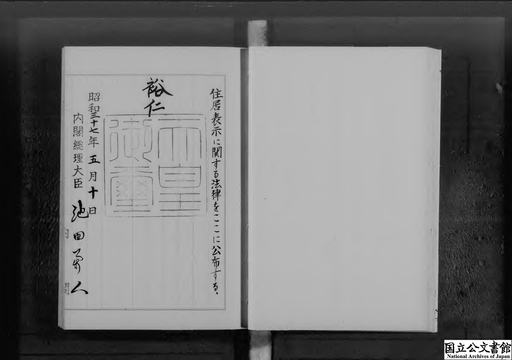 住居表示に関する法律をここに公布する。
裕仁
天皇御璽
昭和三十七年五月十日
内閣総理大臣 池田勇人
国立公文書館
National Archives of Japan